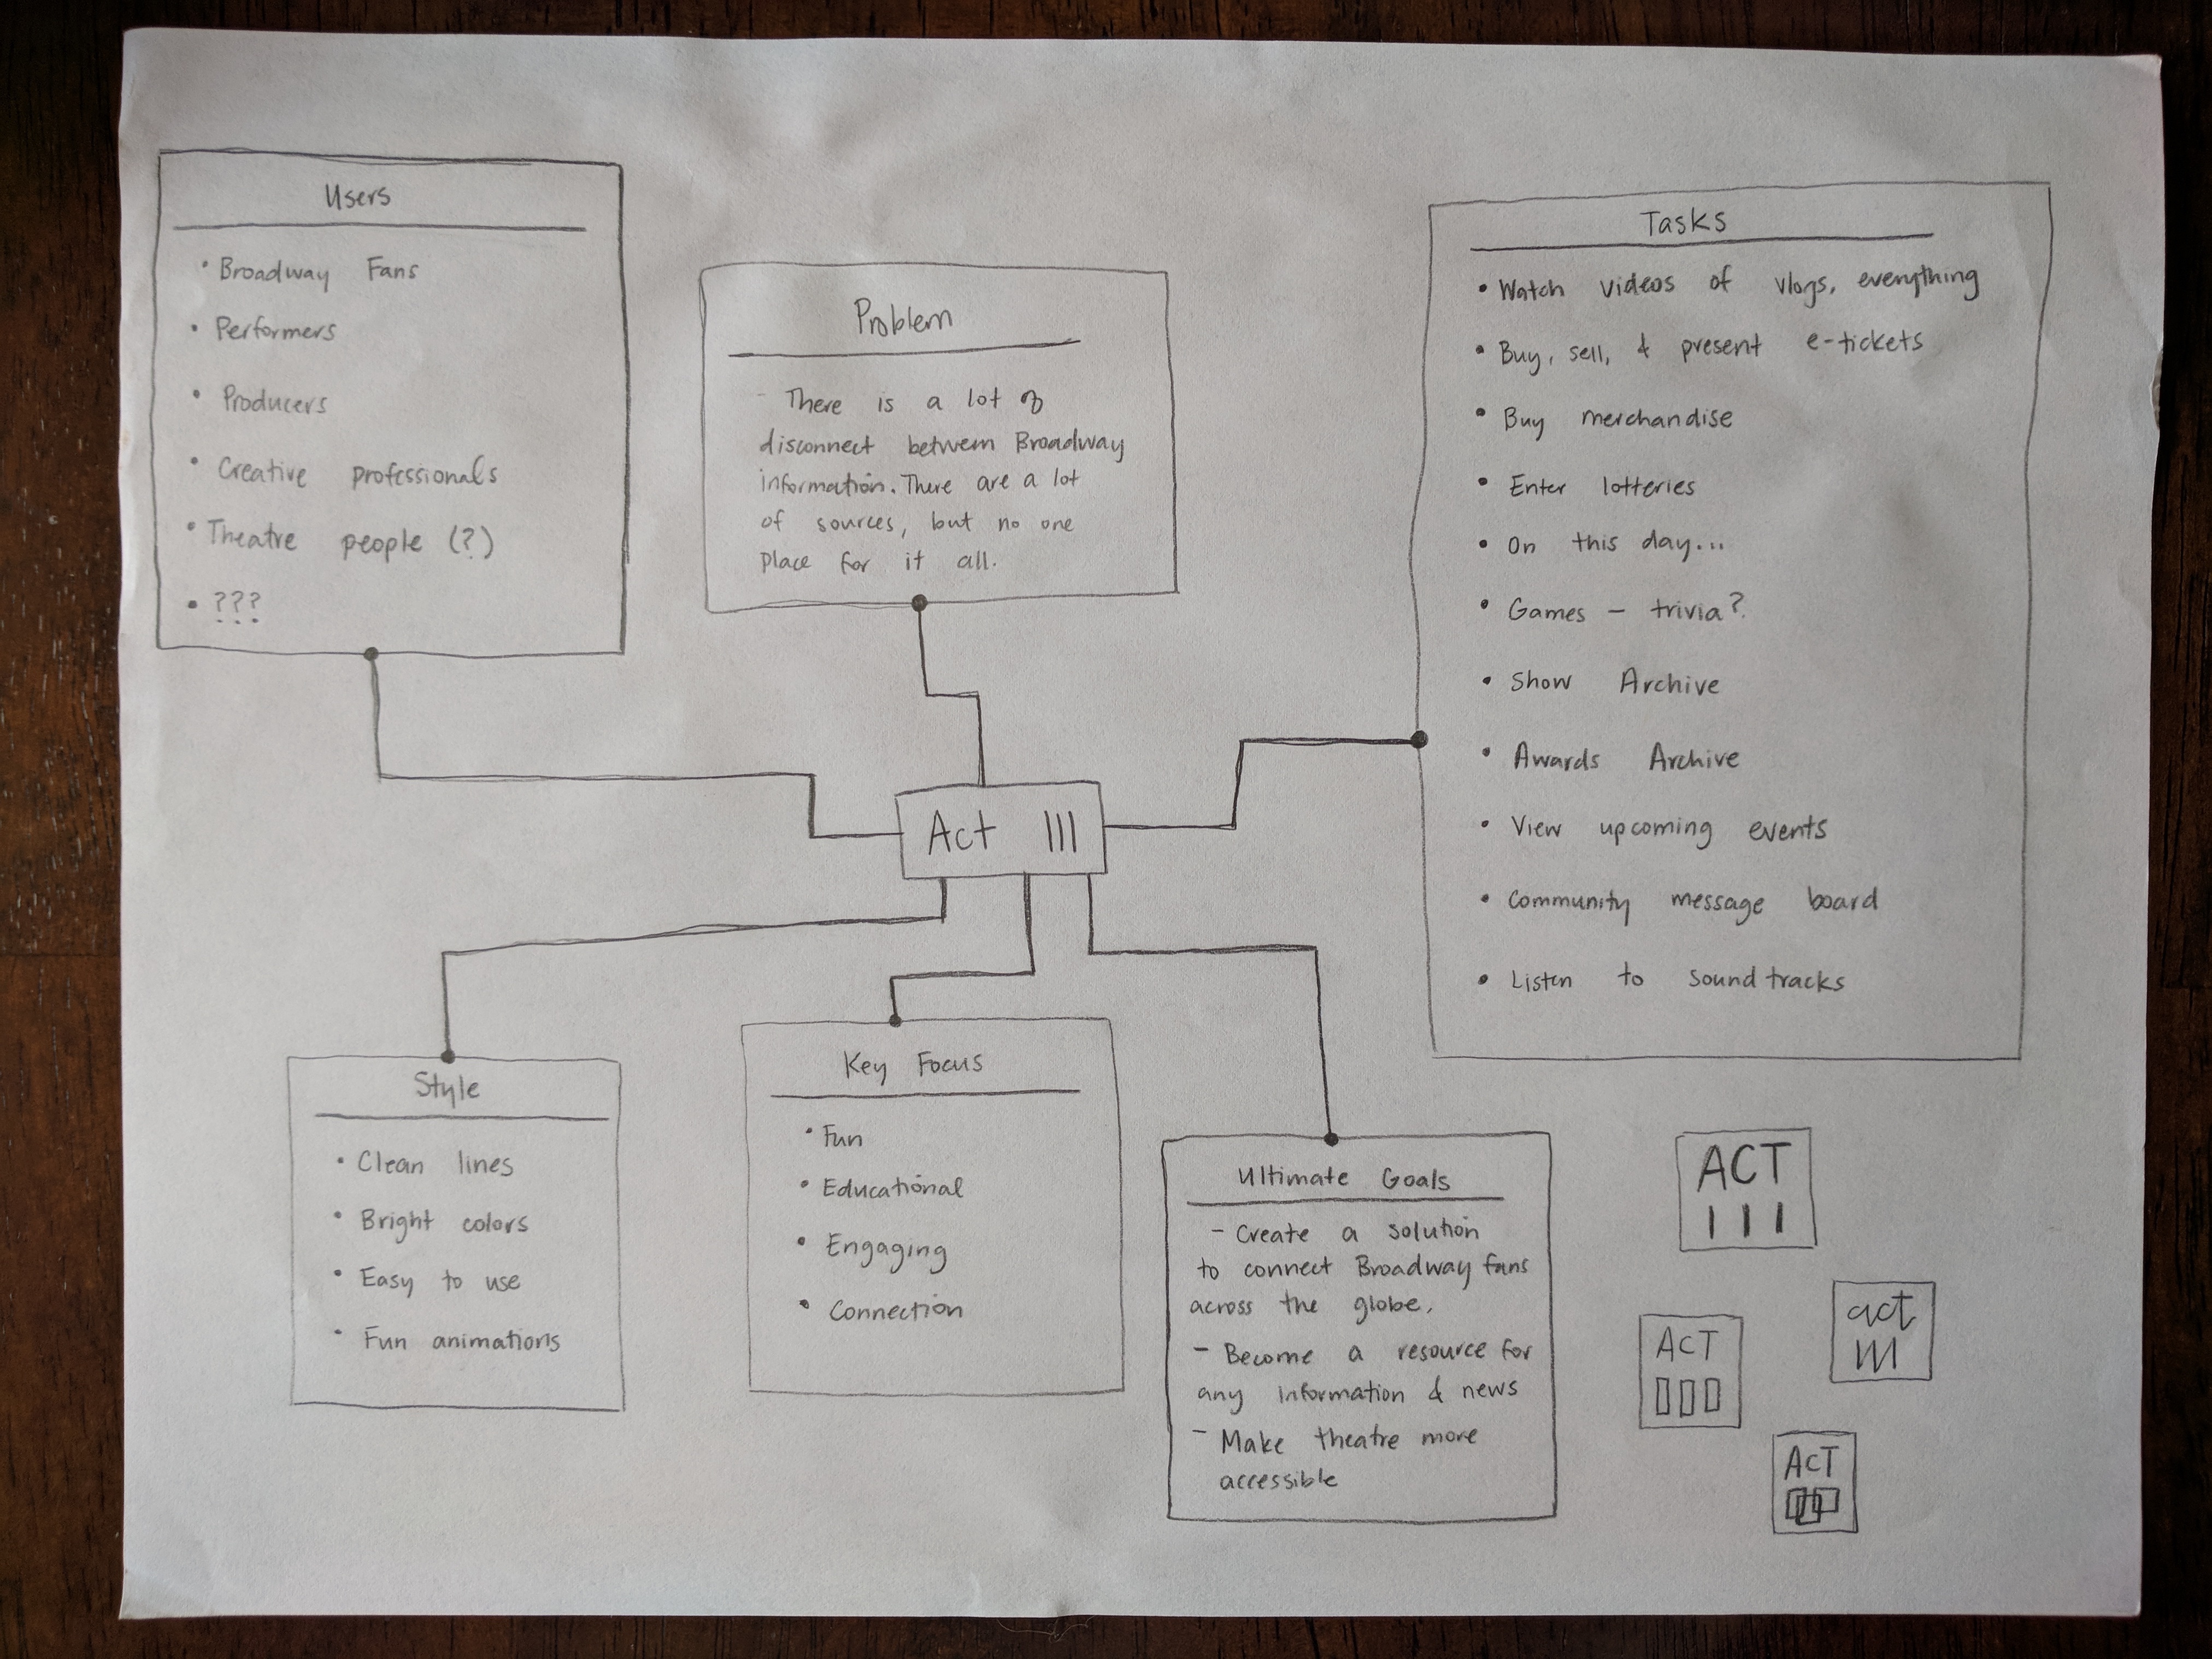 Users
• Broadway Fans
• Performers
• Producers
• Creative professionals
• Theatre people (?)
• ???
Problem
- There is a lot of
disconnect between Broadway
information. There are a lot
of sources, but no one
place for it all.
Tasks
• Watch videos of vlogs, everything
• Buy, sell, & present e-tickets
• Buy merchandise
• Enter lotteries
• On this day...
• Games – trivia?
• Show Archive
• Awards Archive
• View upcoming events
• Community message board
• Listen to soundtracks
Act III
Style
• Clean lines
• Bright colors
• Easy to use
• Fun animations
Key Focus
• Fun
• Educational
• Engaging
• Connection
Ultimate Goals
- Create a solution
to connect Broadway fans
across the globe.
- Become a resource for
any information & news
- Make theatre more
accessible
ACT
III
act
III
ACT
III
ACT